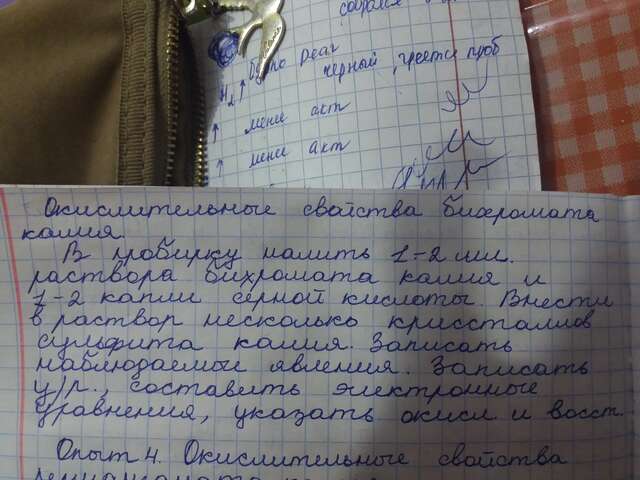 Окислительные свойства бихромата
калия
В пробирку налить 1-2 мл.
раствора бихромата калия и
1-2 капли серной кислоты. Внести
в раствор несколько кристаллов
сульфита калия. Записать
наблюдаемые явления. Записать
у/р. Составить электронные
уравнения, указать окисл. и восст.
Опыт 4. Окислительные свойства
черной, трети туб
менее акт
менее акт